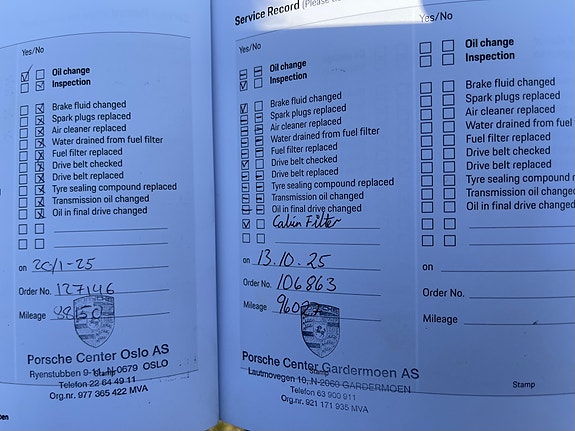 Yes/No
Oil change
Inspection
Brake fluid changed
Spark plugs replaced
Air cleaner replaced
Water drained from fuel filter
Fuel filter replaced
Drive belt checked
Drive belt replaced
Tyre sealing compound replaced
Transmission oil changed
Oil in final drive changed
on 20/1-25
Order No. 127146
Mileage
Porsche Center Oslo AS
Ryenstubben 9-11, N-0679 OSLO
Stamp
Telefon 22 64 49 11
Org.nr. 977 365 422 MVA
Service Record (Please
Yes/No
Oil change
Inspection
Brake fluid changed
Spark plugs replaced
Air cleaner replaced
Water drained from fuel filter
Fuel filter replaced
Drive belt checked
Drive belt replaced
Tyre sealing compound replaced
Transmission oil changed
Oil in final drive changed
Cabin Filter
on 13.10.25
Order No. 106863
Mileage
Porsche Center Gardermoen AS
Stamp
Lautmovegen 10, N-2060 GARDERMOEN
Telefon 63 900 911
Org.nr. 921 171 935 MVA
Yes/No
Oil change
Inspection
Brake fluid changed
Spark plugs replaced
Air cleaner replaced
Water drained from fuel
Fuel filter replaced
Drive belt checked
Drive belt replaced
Tyre sealing compound
Transmission oil changed
Oil in final drive changed
on
Order No.
Mileage
Stamp